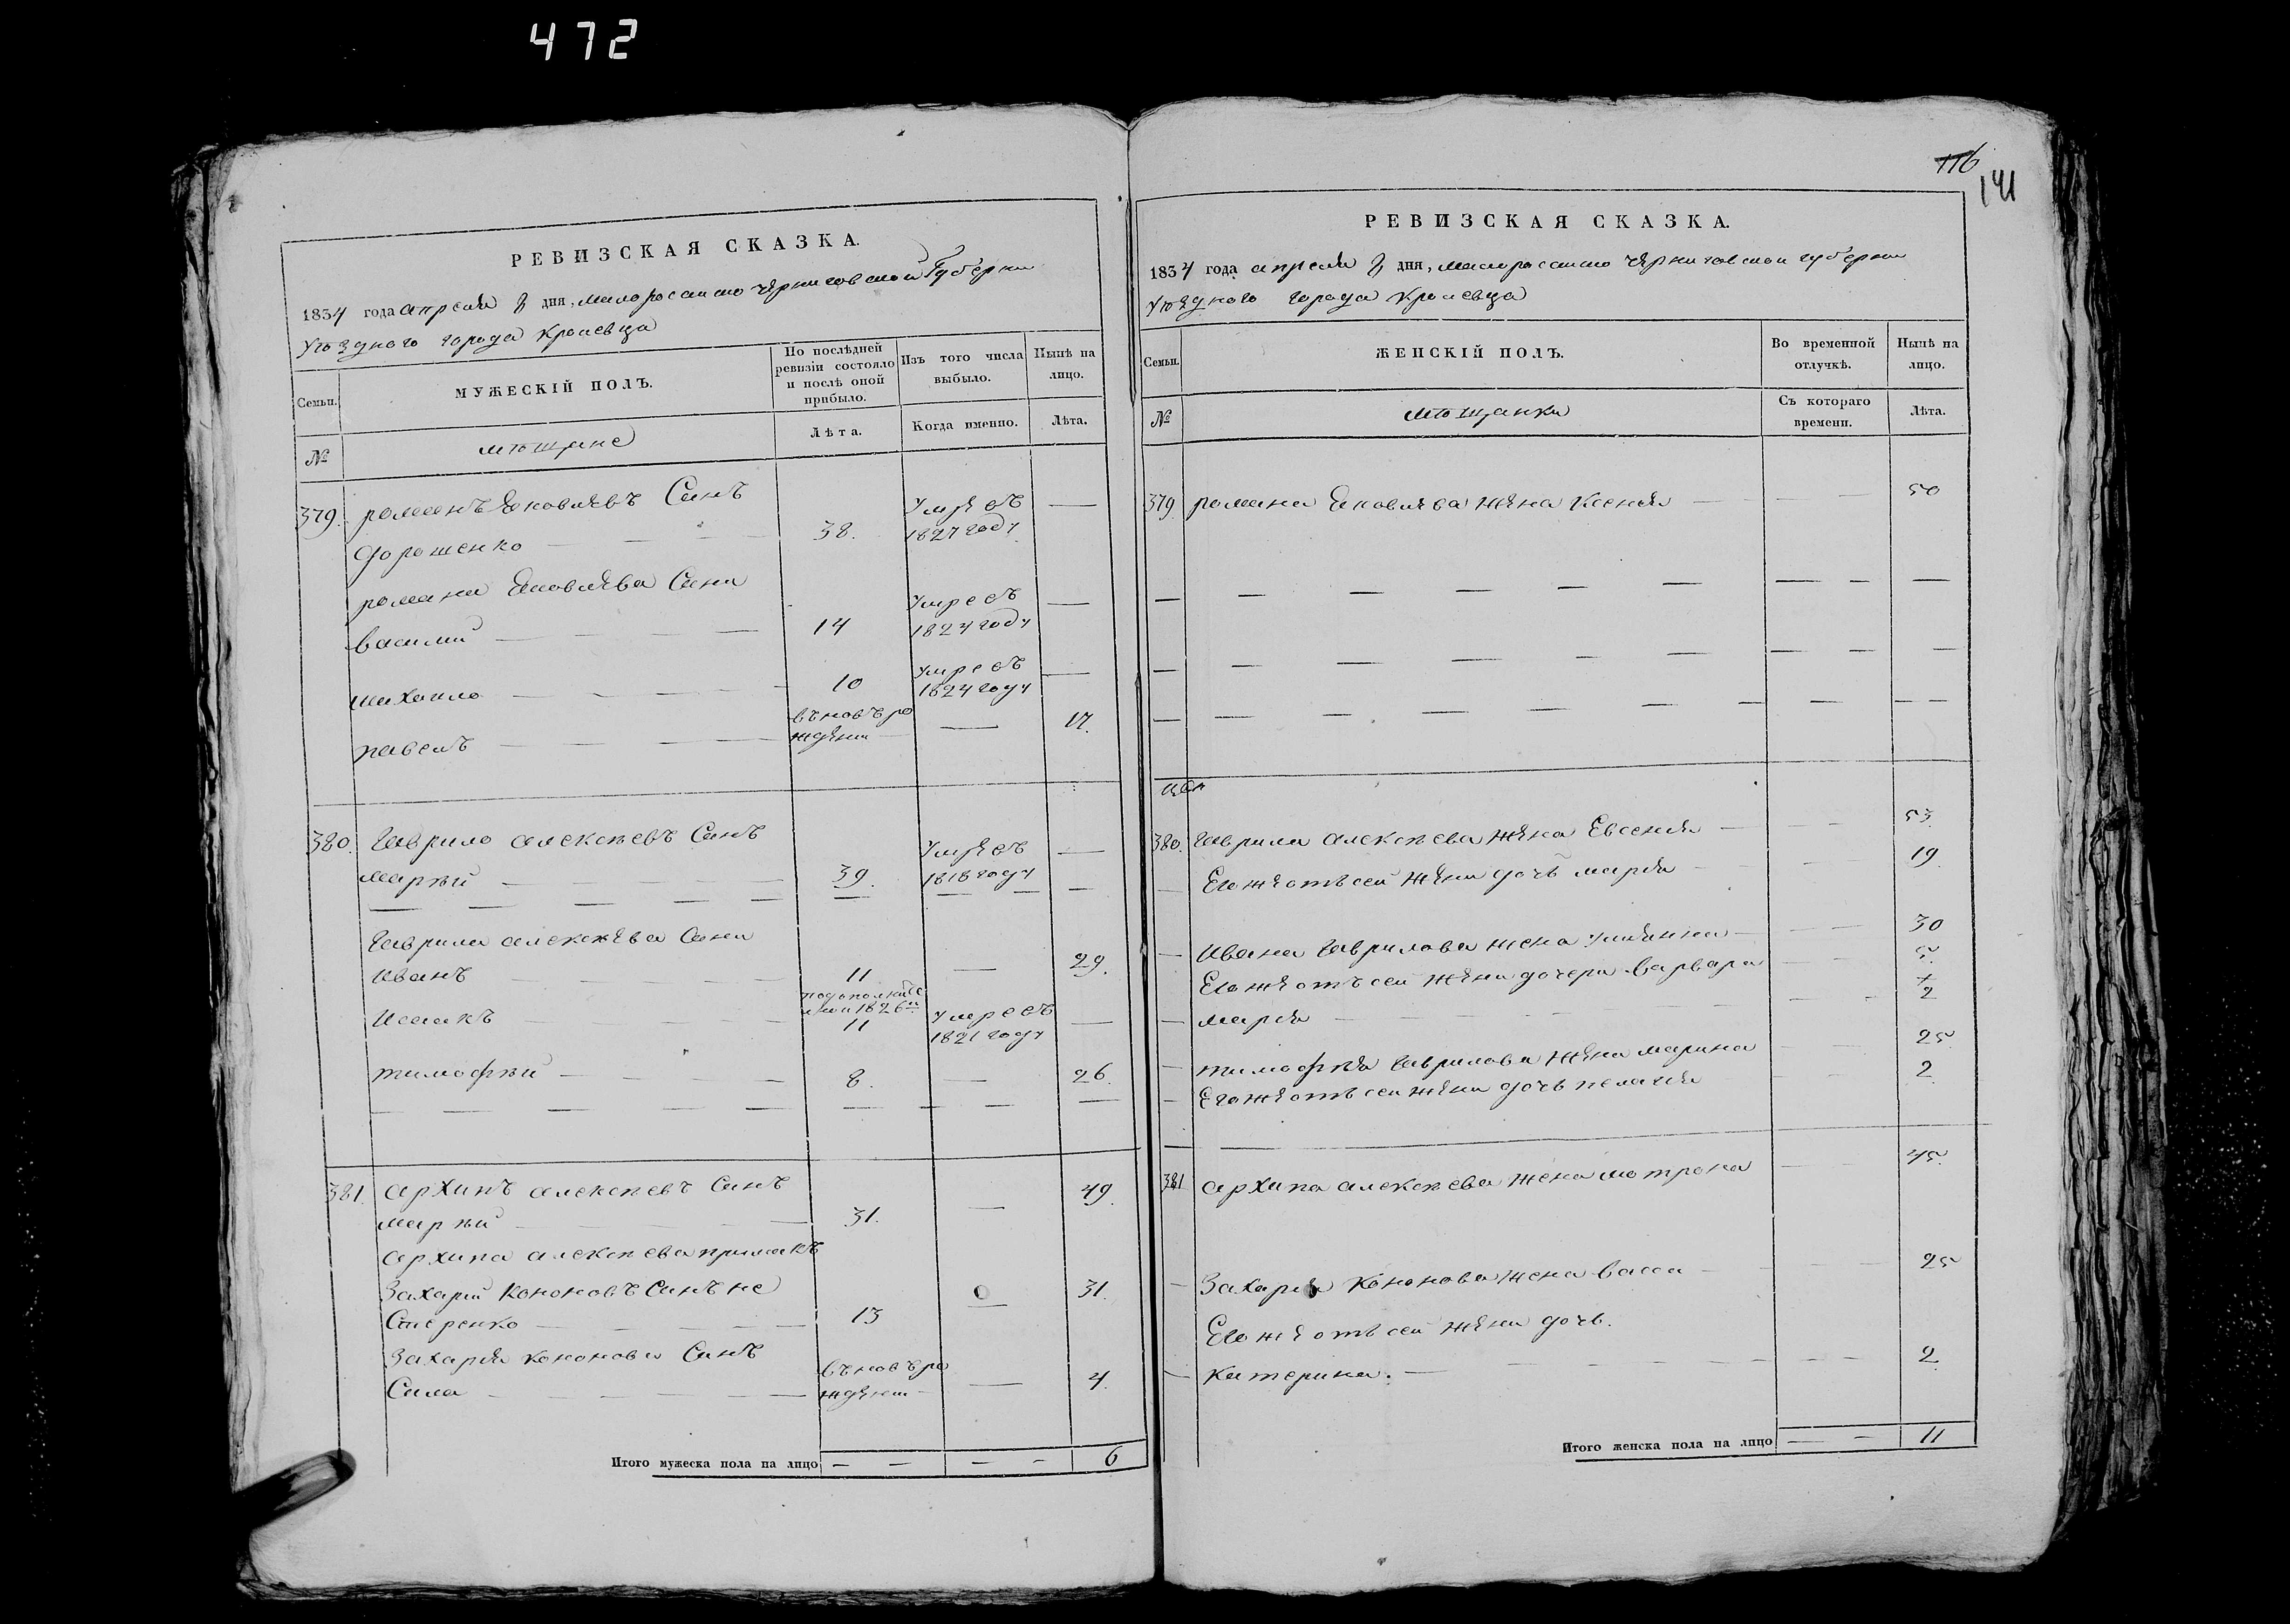 472
116
141
РЕВИЗСКАЯ СКАЗКА.
1834 года апреля 8 дня, малоросийско черниговской Губерни
Уѣздного города Кролевца
Семьи.
МУЖЕСКІЙ ПОЛЪ.
По послѣдней ревизіи состояло и послѣ оной прибыло.
Изъ того числа выбыло.
Нынѣ на лицо.
№
мѣщане
Лѣта.
Когда именно.
Лѣта.
379. романъ Яковлевъ Синъ
дорошенко 38. Умретъ 1827 году
романа Яковлева Сини
василий 14 Умретъ 1824 году
михаило 10 умретъ 1824 году
павелъ вновъ рождени 17.
380. Гаврило алексѣевъ Синъ
39. Умретъ 1818 году
Гаврила алексѣева Сини
иванъ 11 29.
Исаакъ 11 умретъ 1821 году
тимофѣй 8. 26.
381. архипъ алексѣевъ Синъ 49.
31.
архипа алексѣева примакъ
Захарий Кононовъ Синъ не
стеренко 13 31.
Захарія кононова Синъ
Сила вновъ рождени 4.
Итого мужеска пола на лицо 6
РЕВИЗСКАЯ СКАЗКА.
1834 года апреля 8 дня, малоросийско черниговской губерни
Уѣздного города Кролевца
Семьи.
ЖЕНСКІЙ ПОЛЪ.
Во временной отлучкѣ.
Нынѣ на лицо.
№
мѣщанки
Съ котораго времени.
Лѣта.
379 романа Яковлева жена Ксенія 50
380. Гаврила алексѣева жена Евсенія 53.
Его же отъ сей жени дочь марія 19
ивана Гаврилова жена Уліянна 30
Его же отъ сей жени дочери варвара 5.
марія 2
тимофѣя Гаврилова жена марина 25
Его же отъ сей жени дочь пелагія 2
381 архипа алексѣева жена мотрона 45.
Захарія Кононова жена васса 25
Его же отъ сей жени дочь.
Катерина. 2
Итого женска пола на лицо 11